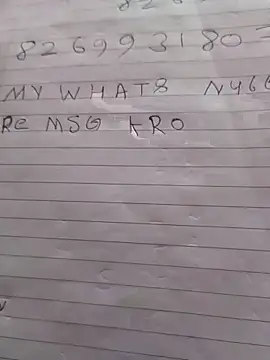 826993180
MY WHATS
Re MSG KRO